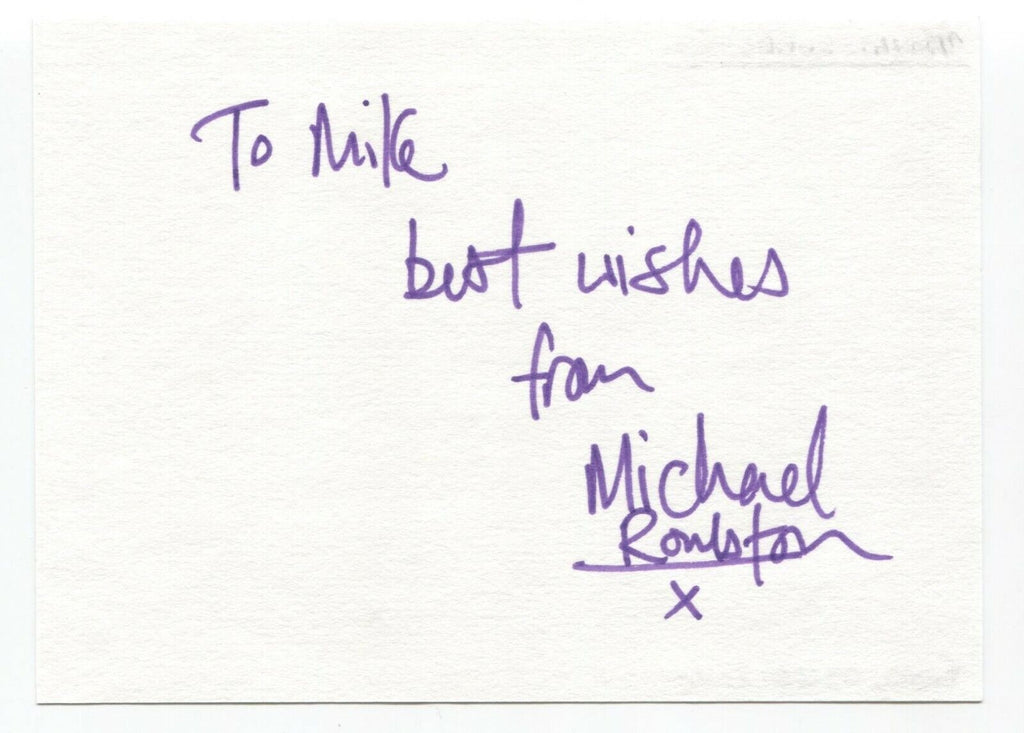 To Mike
best wishes
from
Michael
Roulston
x